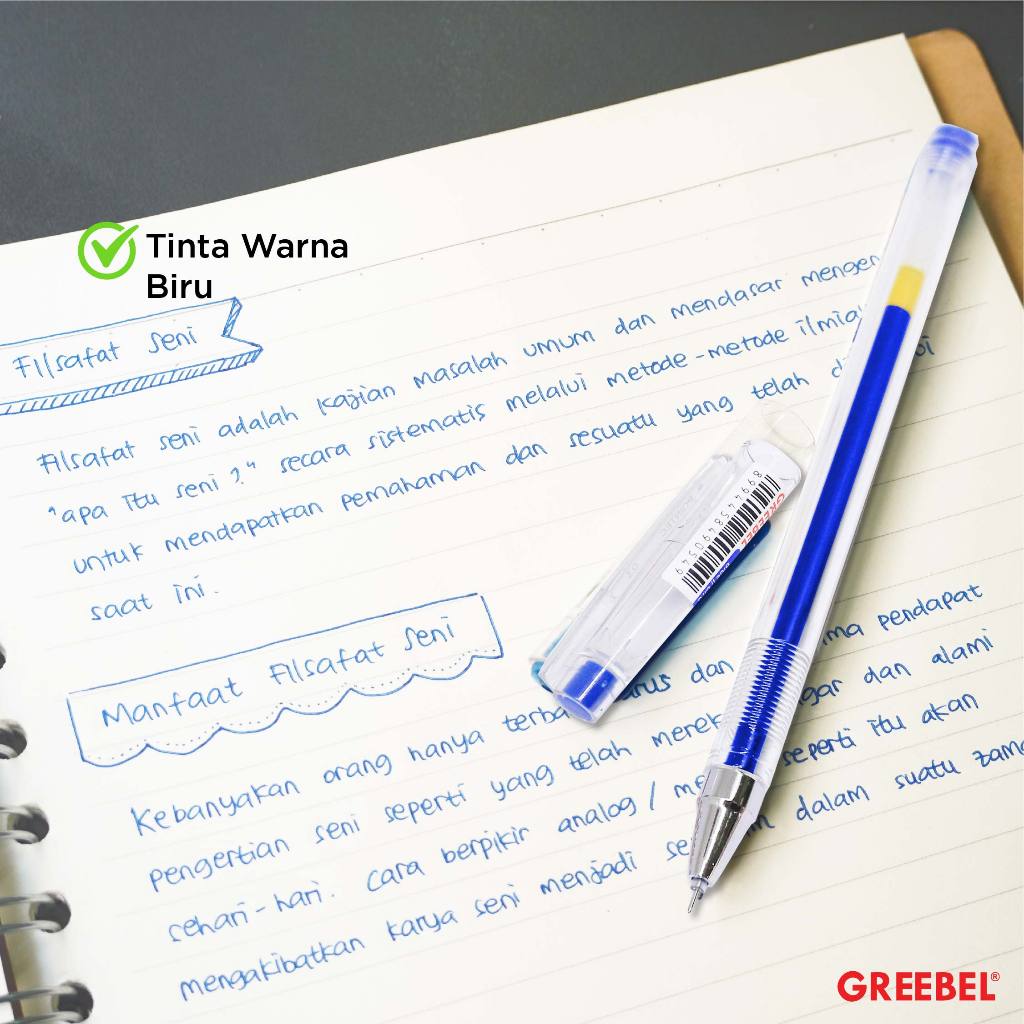 Tinta Warna
Biru
Filsafat Seni
Filsafat seni adalah kajian masalah umum dan mendasar
"apa itu seni?" secara sistematis melalui metode-metode
untuk mendapatkan pemahaman dan sesuatu yang telah
saat ini.
Manfaat Filsafat Seni
Kebanyakan orang hanya dan pendapat
pengertian seni seperti yang telah dan alami
sehari-hari. Cara berpikir analog/ seperti itu akan
mengakibatkan karya seni menjadi dalam suatu
GREEBEL
8994458490549
GREEBEL®